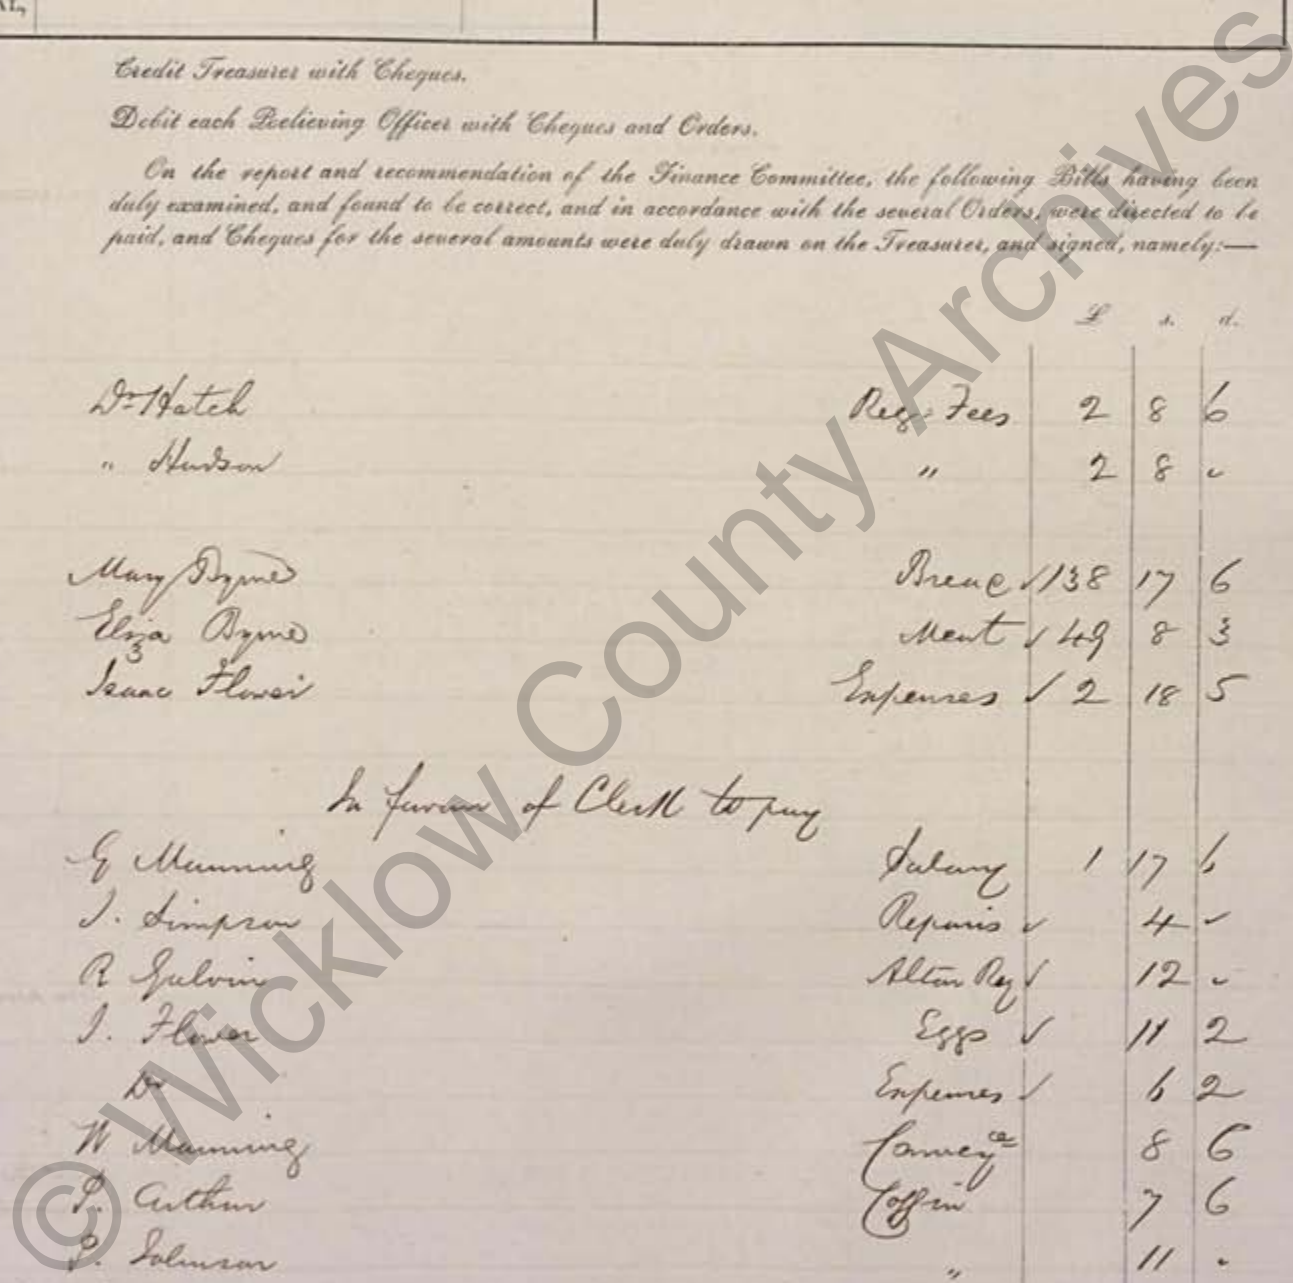 Credit Treasurer with Cheques.
Debit each Relieving Officer with Cheques and Orders.
On the report and recommendation of the Finance Committee, the following Bills having been
duly examined, and found to be correct, and in accordance with the several Orders, were directed to be
paid, and Cheques for the several amounts were duly drawn on the Treasurer, and signed, namely:—
£ s. d.
Dr Hatch Reg. Fees 2 8 6
" Hudson " 2 8 "
Mary Byrne ✓ 138 17 6
Eliza Byrne Meat ✓ 49 8 3
Isaac Flower Expenses ✓ 2 18 5
In favour of Clerk to pay
G Manning Salary 1 17 6
J. Simpson Repairs ✓ 4 "
R Galvin Altar Req ✓ 12 "
I. Flower Eggs ✓ 11 2
Do Expenses ✓ 6 2
W Manning Conveyce 8 6
P. Arthur Coffin 7 6
P. Johnson " 11 "
© Wicklow County Archives